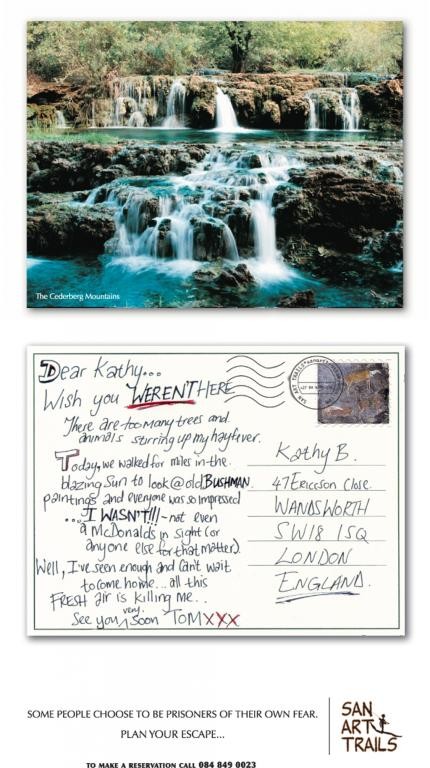 The Cederberg Mountains
Dear Kathy...
Wish you WEREN'T HERE
There are too many trees and
animals stirring up my hayfever.
Today, we walked for miles in the
blazing Sun to look @ old BUSHMAN
paintings and everyone was so impressed
...I WASN'T!!! - not even
a McDonalds in sight (or
anyone else for that matter).
Well, I've seen enough and can't wait
to come home... all this
FRESH air is killing me..
See you very soon TOM XXX
SAN ART TRAILS
Kathy B.
47 Ericcson Close
WANDSWORTH
SW18 1SQ
LONDON
ENGLAND.
SOME PEOPLE CHOOSE TO BE PRISONERS OF THEIR OWN FEAR.
PLAN YOUR ESCAPE...
TO MAKE A RESERVATION CALL 084 849 0023
SAN
ART
TRAILS